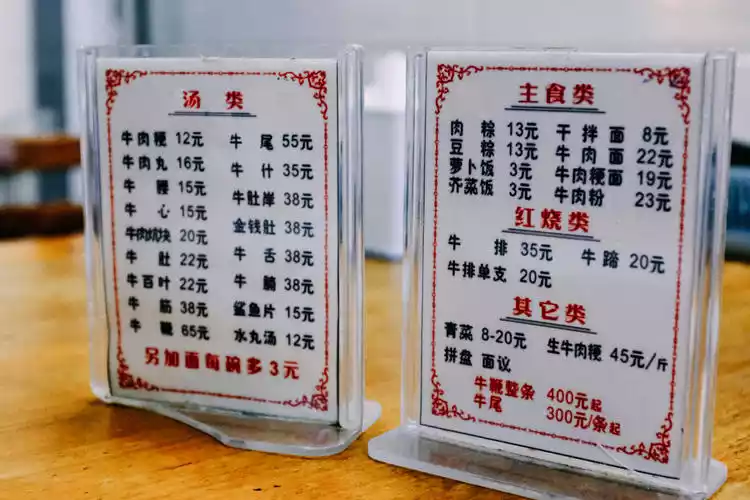 汤 类
牛肉粳 12元
牛肉丸 16元
牛 腰 15元
牛 心 15元
20元
牛 肚 22元
牛百叶 22元
牛 筋 38元
牛 鞭 65元
牛 尾 55元
牛 什 35元
牛肚岸 38元
金钱肚 38元
牛 舌 38元
牛 腩 38元
鲨鱼片 15元
水丸汤 12元
另加面每碗多3元
主食类
肉 粽 13元
豆 粽 13元
萝卜饭 3元
芥菜饭 3元
干 拌 面 8元
牛 肉 面 22元
牛肉粳面 19元
牛肉粉 23元
红烧类
牛 排 35元
牛排单支 20元
牛 蹄 20元
其它类
青菜 8-20元
拼盘 面议
生牛肉粳 45元/斤
牛鞭整条 400元起
牛尾 300元/条起